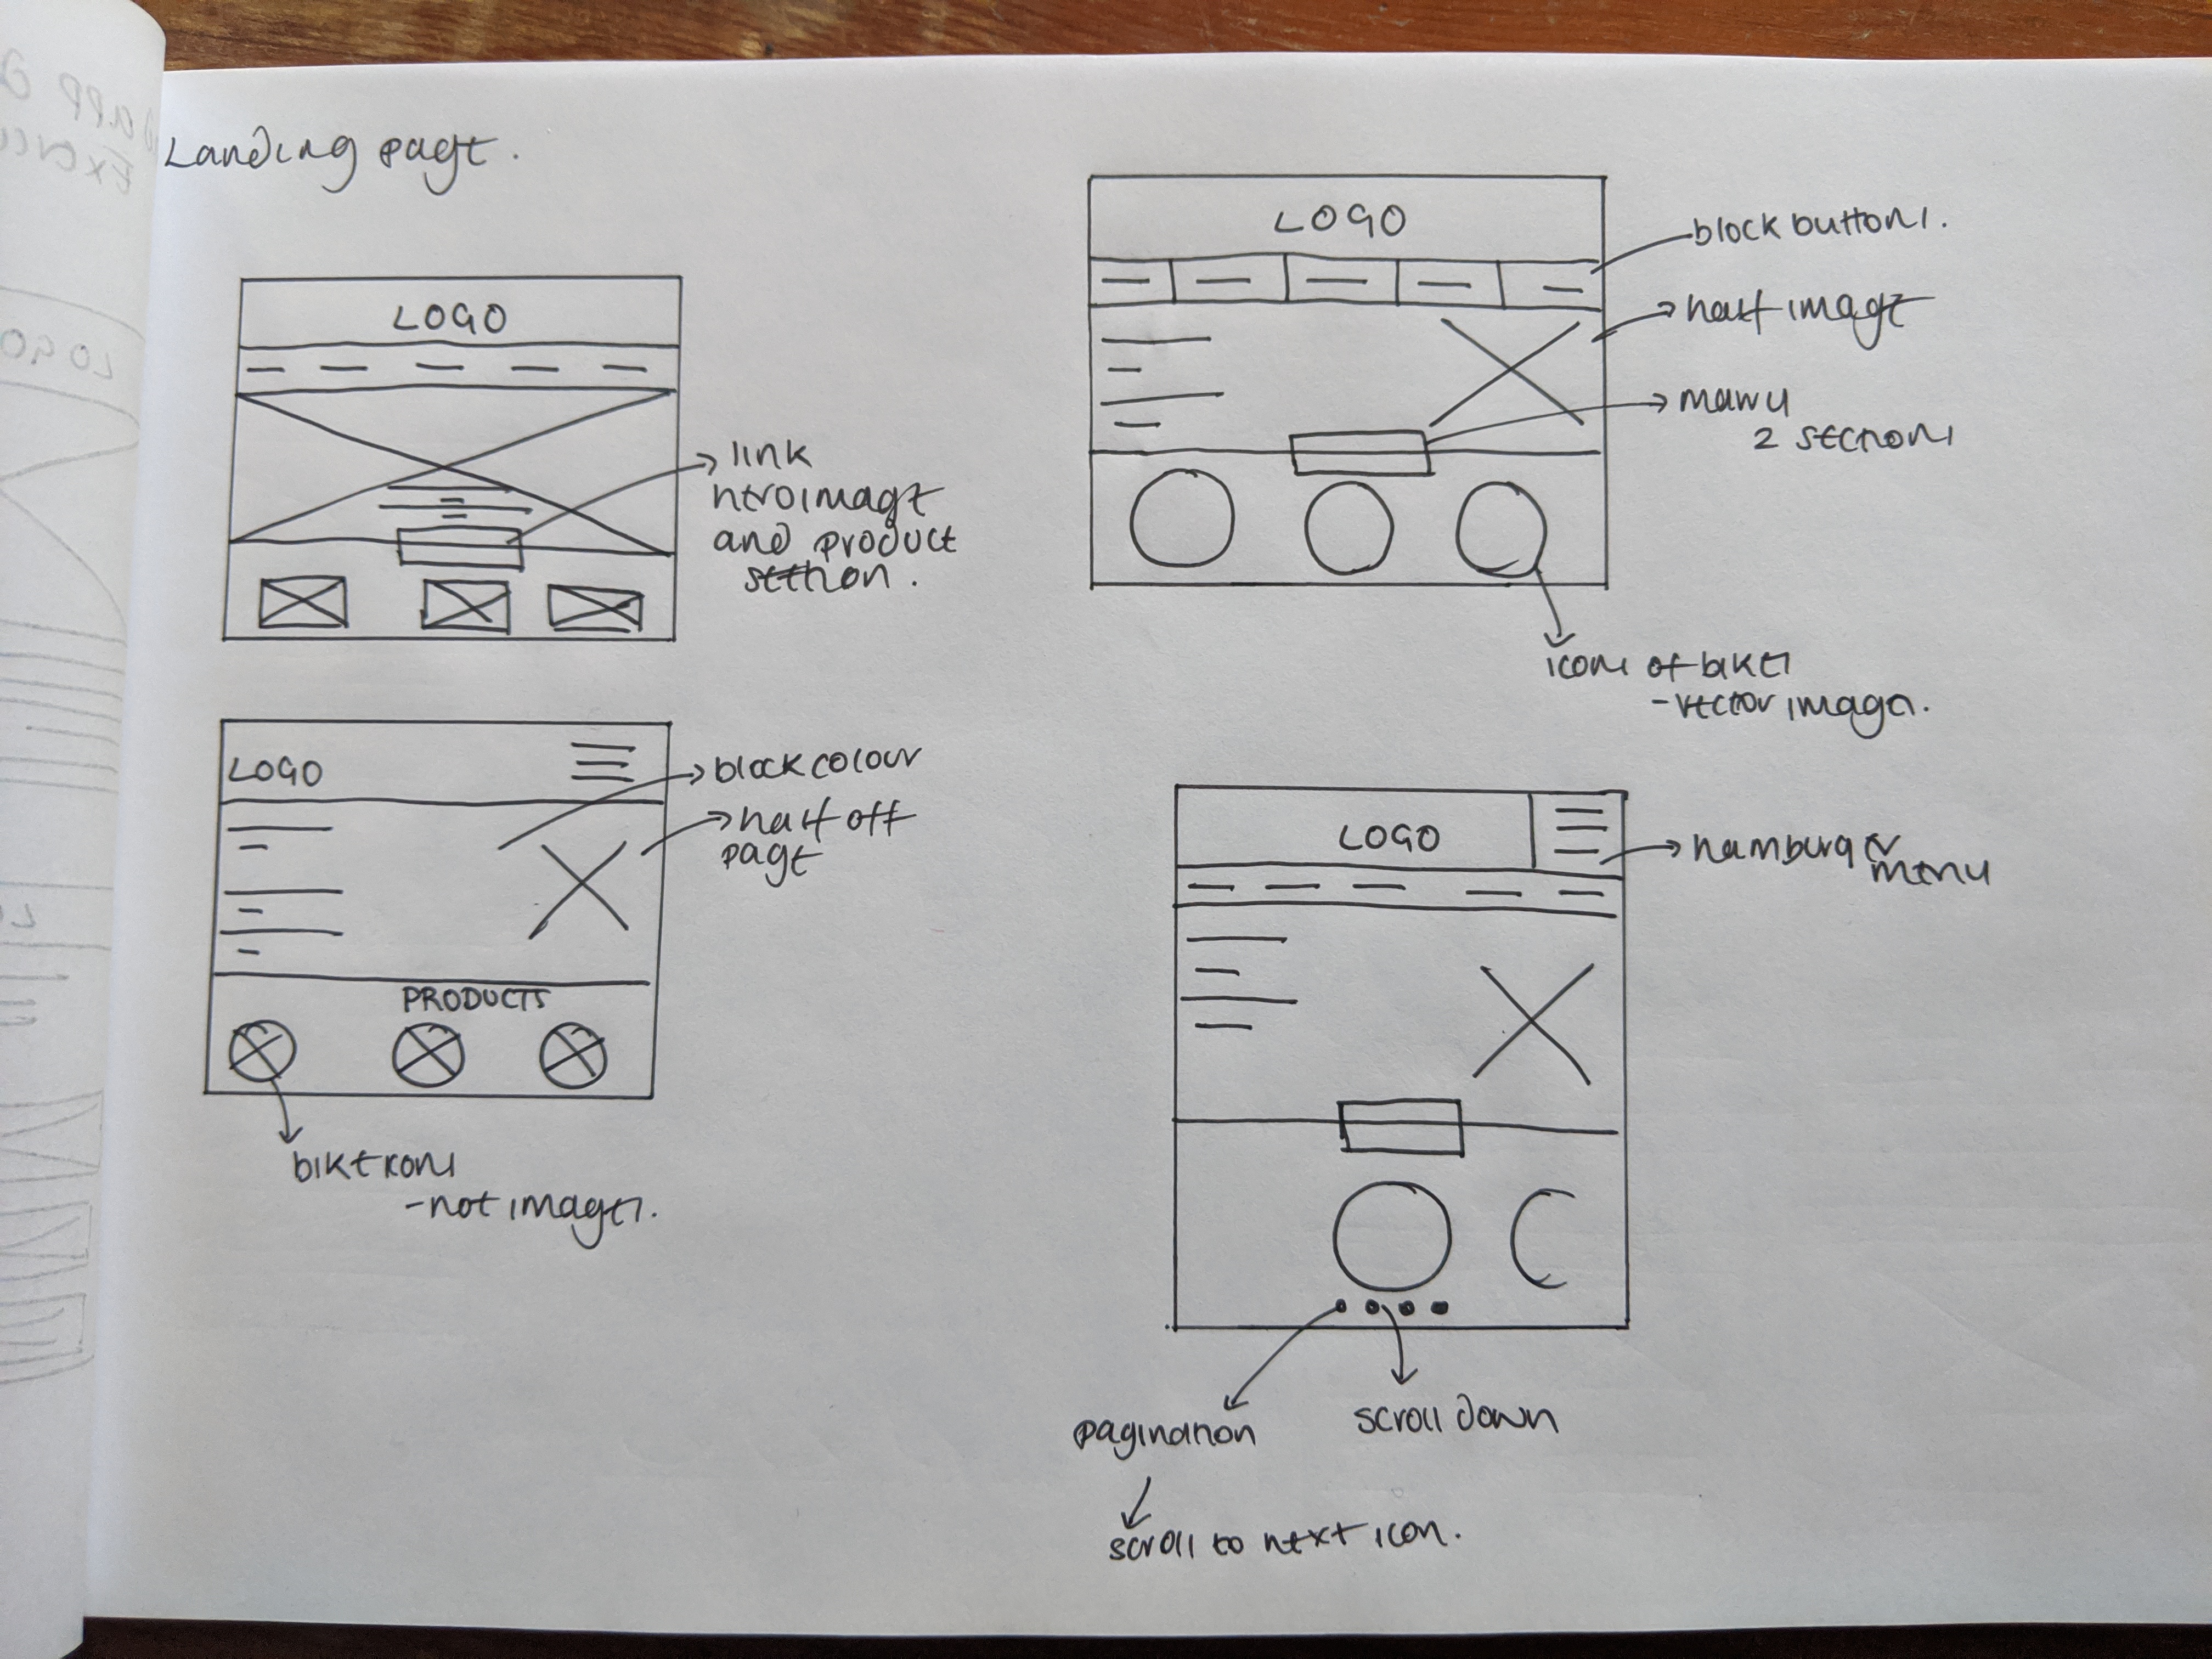 Landing page.
LOGO
link
hero image
and product
section.
LOGO
block buttons.
half image
2 sections
icons of bikes
- vector images.
LOGO
block colour
half off
page
PRODUCTS
bike icons
- not images.
LOGO
hamburger
menu
pagination
scroll down
scroll to next icon.
app
LOGO